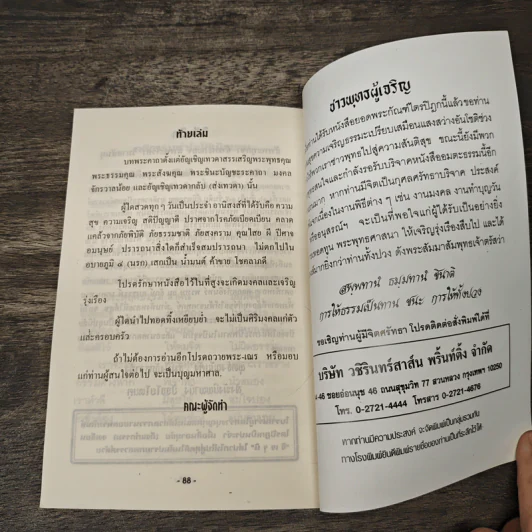 ท้ายเล่ม
บทพระคาถาตั้งแต่อัญเชิญเทวดาสรรเสริญพระพุทธคุณ
พระธรรมคุณ พระสังฆคุณ พระชินะบัญชะระคาถา มงคล
จักรวาลน้อย และอัญเชิญเทวดากลับ (ส่งเทวดา) นั้น
ผู้ใดสวดทุก ๆ วันเป็นประจำ อานิสงส์ที่ได้รับคือ ความ
สุข ความเจริญ สติปัญญาดี ปราศจากโรคภัยเบียดเบียน คลาด
แคล้วจากภัยพิบัติ ภัยธรรมชาติ ภัยสงคราม คุณไสย ผี ปีศาจ
อมนุษย์ ปรารถนาสิ่งใดก็สำเร็จสมปรารถนา ไม่ตกไปใน
อบายภูมิ ๔ (นรก) เสกเป็น น้ำมนต์ ค้าขาย โชคลาภดี
โปรดรักษาหนังสือไว้ในที่สูงจะเกิดมงคลและเจริญ
รุ่งเรือง
ผู้ใดนำไปทอดทิ้งเหยียบย่ำ จะไม่เป็นศิริมงคลแก่ตัว
และครอบครัว
ถ้าไม่ต้องการอ่านอีกโปรดถวายพระ-เณร หรือมอบ
แก่ท่านผู้สนใจต่อไป จะเป็นบุญมหาศาล.
คณะผู้จัดทำ
- 88 -
ชาวพุทธผู้เจริญ
ได้รับหนังสือยอดพระกัณฑ์ไตรปิฎกนี้แล้วขอท่าน
สุขความเจริญธรรมะเปรียบเสมือนแสงสว่างอันโชติช่วง
ให้พวกเราชาวพุทธไปสู่ความสันติสุข ขณะนี้ยังมีพวก
สนใจและกำลังรอรับบริจาคหนังสืออมตะธรรมนี้อีก
มาก หากท่านมีจิตเป็นกุศลศรัทธาบริจาค ประสงค์
เนื่องในงานพิธีต่าง ๆ เช่น งานมงคล งานทำบุญวัน
อนุสรณ์ฯ จะเป็นที่พอใจแก่ผู้ได้รับเป็นอย่างยิ่ง
ทอดทูน พระพุทธศาสนา ให้เจริญรุ่งเรืองสืบไป และได้
ที่มากยิ่งกว่าท่านทั้งปวง ดังพระสัมมาสัมพุทธเจ้าตรัสว่า
สพฺพทานํ ธมฺมทานํ ชินาติ
การให้ธรรมเป็นทาน ชนะ การให้ทั้งปวง
ขอเชิญท่านผู้มีจิตศรัทธา โปรดติดต่อสั่งพิมพ์ได้ที่
บริษัท วชิรินทร์สาส์น พริ้นท์ติ้ง จำกัด
-46 ซอยอ่อนนุช 46 ถนนสุขุมวิท 77 สวนหลวง กรุงเทพฯ 10250
โทร. 0-2721-4444 โทรสาร 0-2721-4676
หากท่านมีความประสงค์ จะจัดพิมพ์เป็นกลุ่มรวมกัน
ทางโรงพิมพ์ยินดีพิมพ์รายชื่อของท่านเป็นที่ระลึกไว้ได้